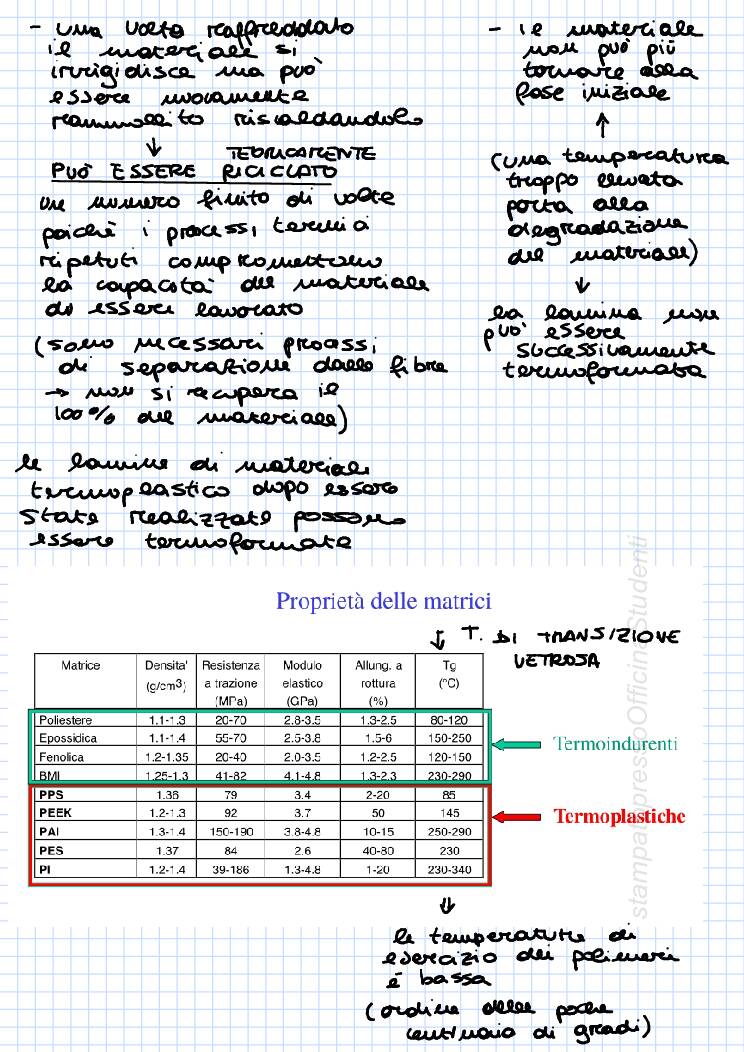 - una volta raffreddato
il materiale si
irrigidisce ma può
essere nuovamente
rammollito riscaldandolo
↓ TEORICAMENTE
PUÒ ESSERE RICICLATO
un numero finito di volte
poiché i processi termici
ripetuti compromettono
la capacità del materiale
di essere lavorato
(sono necessari processi
di separazione dalle fibre
→ non si recupera il
100% del materiale)
- il materiale
non può più
tornare alla
fase iniziale
↑
(una temperatura
troppo elevata
porta alla
degradazione
del materiale)
↓
la lamina non
può essere
successivamente
termoformata
le lamine di materiale
termoplastico dopo essere
state realizzate possono
essere termoformate
Proprietà delle matrici
↓ T. DI TRANSIZIONE
VETROSA
Matrice Densita' (g/cm3) Resistenza a trazione (MPa) Modulo elastico (GPa) Allung. a rottura (%) Tg (°C)
Poliestere 1.1-1.3 20-70 2.8-3.5 1.3-2.5 80-120
Epossidica 1.1-1.4 55-70 2.5-3.8 1.5-6 150-250
Fenolica 1.2-1.35 20-40 2.0-3.5 1.2-2.5 120-150
BMI 1.25-1.3 41-82 4.1-4.8 1.3-2.3 230-290
PPS 1.36 79 3.4 2-20 85
PEEK 1.2-1.3 92 3.7 50 145
PAI 1.3-1.4 150-190 3.8-4.8 10-15 250-290
PES 1.37 84 2.6 40-80 230
PI 1.2-1.4 39-186 1.3-4.8 1-20 230-340
Termoindurenti
Termoplastiche
↓
le temperature di
esercizio dei polimeri
è bassa
(ordine delle poche
centinaia di gradi)
stampato presso Officina Studenti